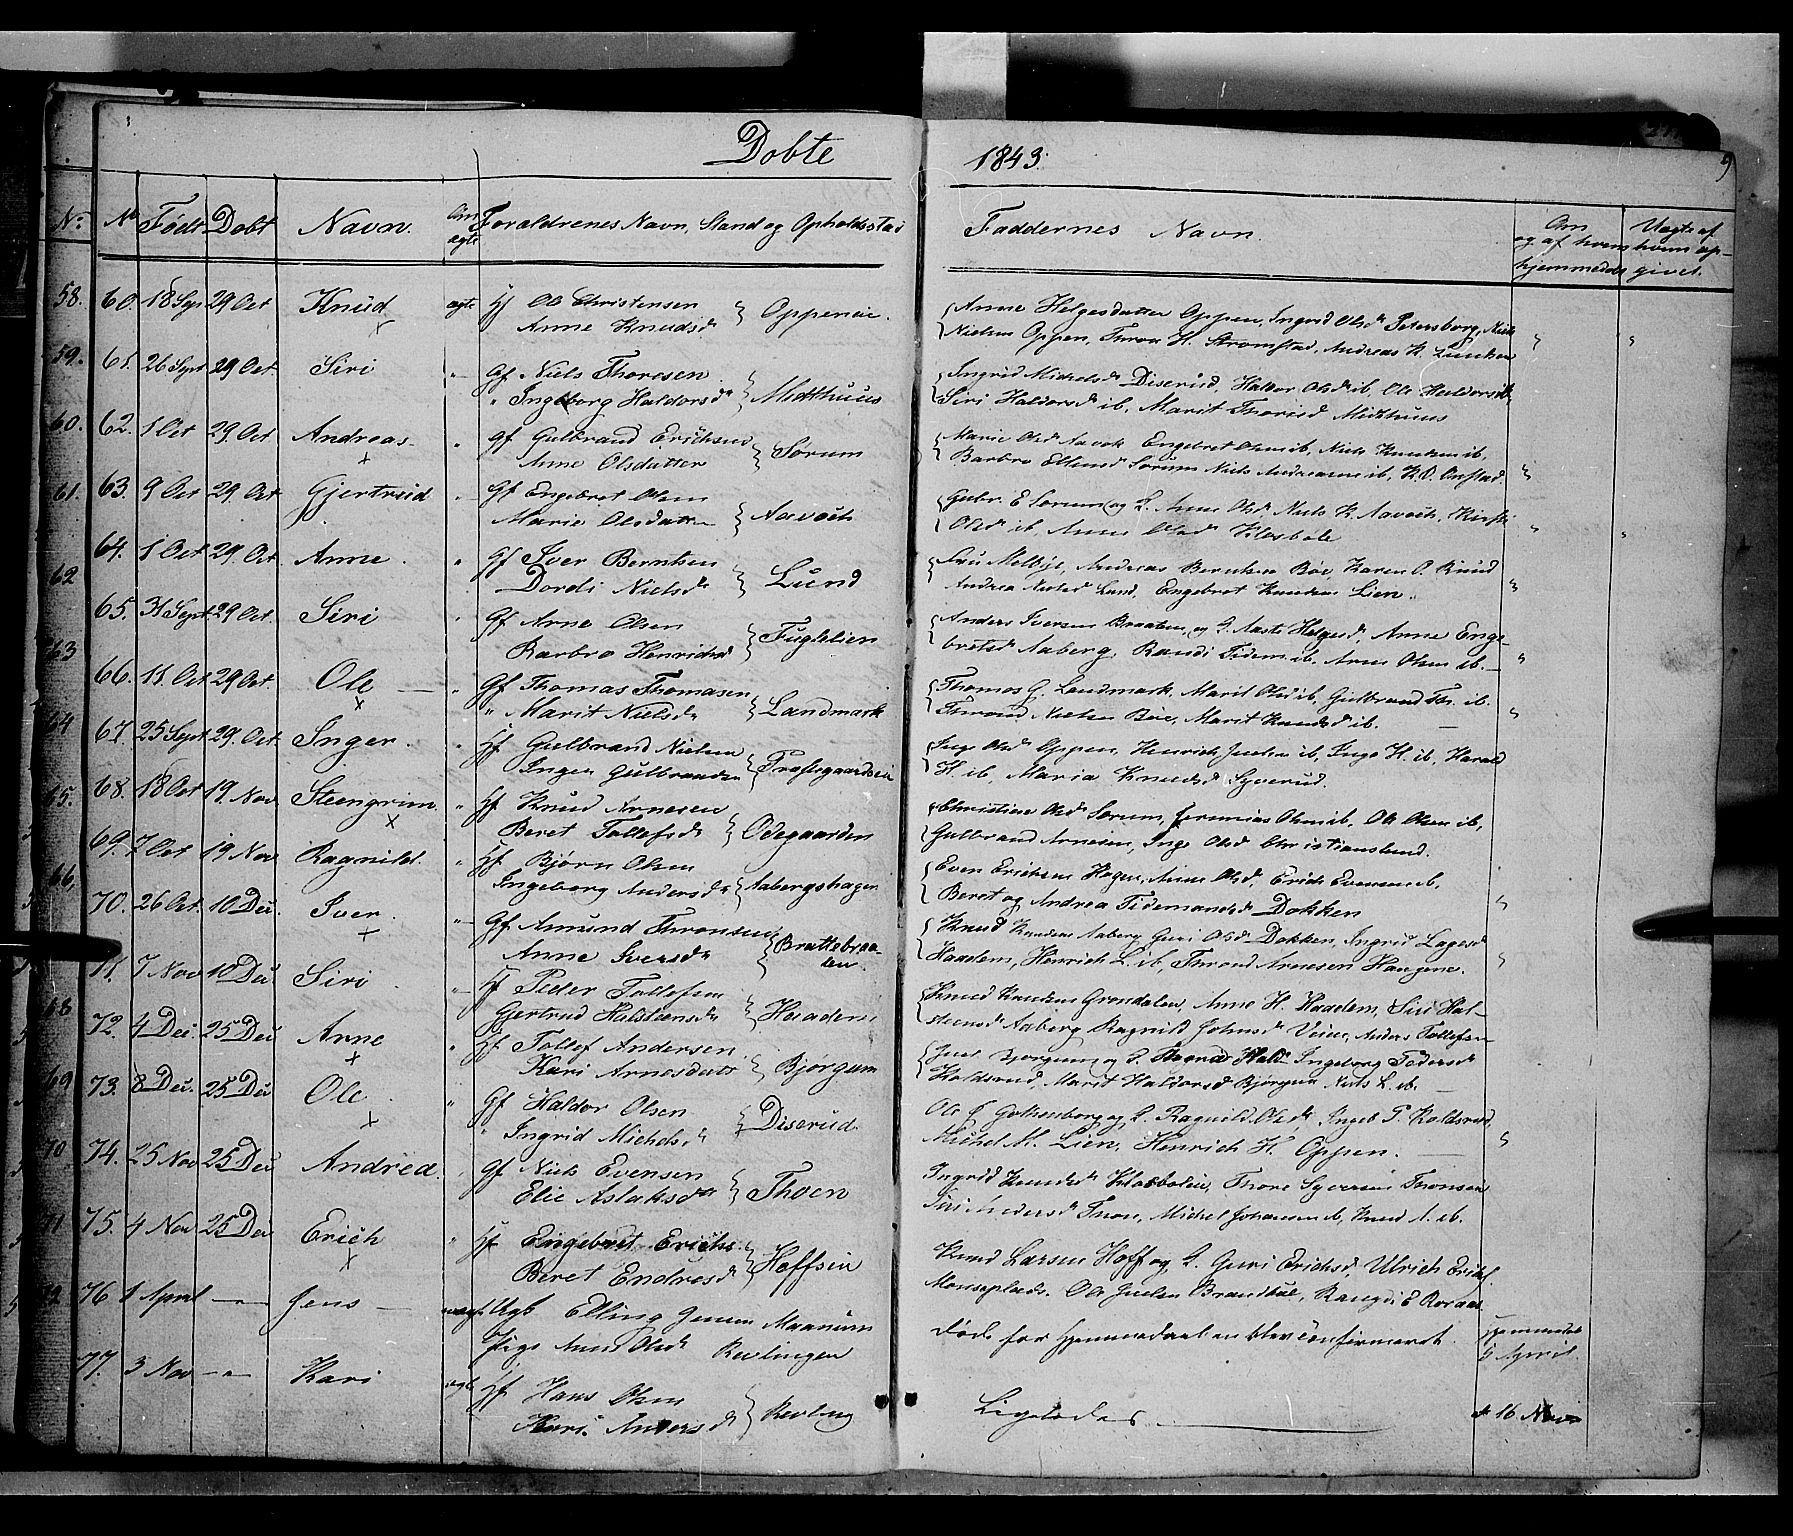 Døbte 1843. 9
No. No Født Døbt Navn. Om ægte Forældrenes Navn, Stand og Opholdssted Faddernes Navn. Om og af hvem hjemmedøbt Uægte af hvem opgivet.
60. 18 Sept 29 Oct Knud ægte Hf Ole Christensen
Anne Knudsd } Oppeneie.
{ Anne Helgesdatter Oppen, Ingrid Olsd Petersborg, Niels
Nielsen Oppen, Thron H. Strømstad, Andreas K. Lundsen
58.
59. 61. 26 Sept 29 Oct Siri Gf Niels Thoresen
" Ingeborg Haldorsd } Midthuus
{ Ingrid Michelsd Diserud, Haldor Olsd ib, Ole Haldorsib,
Siri Haldorsd ib, Marit Thorisd Midthuus
60. 62. 1 Oct 29 Oct Andreas Gf Gulbrand Erichsen
Anne Olsdatter } Sørum
{ Marie Olsd Aavok Engebret Olsen ib, Niels Knudsen ib,
Barbro Ellensd Sørum Niels Andreasen ib, K. O. Onstad.
61. 63. 9 Oct 29 Oct Gjertrud Gf Engebret Olsen
Marie Olsdatter } Aavoch
{ Gulbr. E Sørum og L. Anne Olsd, Niels K. Aavoch, Kirsti
Olsd ib, Anne Olsd Klosbøle
62 64. 1 Oct 29. Oct Anne Gf Iver Berntsen
Dordi Nielsd } Lund
{ Melbye, Andreas Berntsen Bøe, Karen O. Rund
Andrea Nielsd Lund, Engebret Knudsen Lien.
63 65. 31 Sept 29 Oct. Siri Gf Arne Olsen
Barbro Henrichsd } Fuglelien
{ Anders Iversen Braaten, og L. Aaste Helgesd, Anne Enge-
bretsd Aaberg, Randi Tidem ib, Arne Olsen ib.
64 66. 11. Oct 29 Oct. Ole Gf Thomas Thomasen
" Marit Nielsd } Landmark
{ Thomas G. Landmark, Marit Olsd ib, Gulbrand Th. ib.
Thrond Nielsen Bøe, Marit Knudsd ib.
67. 25 Sept 29. Oct. Inger. Hf Gulbrand Nielsen
Inger Gulbrandsd } Præstegaardseie
{ Inge Olsd Oppen, Henrich Juelsen ib, Inge H. ib, Harald
H. ib, Maria Knudsd Syverud.
65. 68. 18 Oct 19. Nov Steengrim Hf Knud Arnesen
Beret Tollefsd } Ødegaarden
{ Christine Olsd Sørum, Jeremias Olsen ib, Ole Olsen ib,
Gulbrand Arnesen, Inge Olsd Christianslund.
66. 69. 7 Oct 19 Nov Ragnild. Hf Bjørn Olsen
Ingeborg Andersd } Aabergshagen
{ Even Erichsen Hagen, Anne Olsd, Erich Evensen ib,
Beret og Andrea Tidemandsd Dokken
70. 26 Oct. 10 Dec. Iver. Gf Amund Thronsen
Anne Iversd } Brattebraa-
ten.
{ Knud Knudsen Aaberg, Guri Olsd Dokken, Ingrid Lagesd
Haadem, Henrich L. ib, Thrond Arnesen Haugene.
71. 7 Nov 10 Dec Siri Hf Peder Tollefsen
Gertrud Halsteensd } Haadem
{ Knud Knudsen Grøndalen, Anne H. Haadem, Siri Hal-
steensd Aaberg Ragnild Johnsd Veien, Anders Tollefsen
68 72. 4 Dec. 25 Dec Anne Hf Tollef Andersen
Kari Arnesdatr } Bjørgum
{ Juel Bjørgum og L. Hald. Ingeborg Pedersd
Koldsrud, Marit Haldorsd Bjørgum Niels L. ib.
69 73. 8 Dec. 25 Dec Ole Gf Haldor Olsen
" Ingrid Michelsd } Diserud.
Ole J. Gothenborg og L Ragnild Olsd, Ingeb P. Koldsrud,
Michel M. Lien, Henrich H. Oppen.
70 74. 25 Nov 25 Dec Andrea. Gf Niels Evensen
Elie Aslaksd } Thoen
Ingrid Knudsd Klosbølen, Thore Syversen Thonsen
Siri Andersd Thon, Michel Johansen ib, Knud A. ib.
71 75. 4 Nov 25 Dec Erich Hf Engebret Erichs.
Beret Endresd } Hoffseie
Knud Larsen Hoff og L. Guri Erichsd, Ulrich Eriks.
Monseplads. Ole Juelsen Brandbue, Rangdi E Roraas
72 76. 1 April Jens uægte Ugk Elling Jensen Maanum
Pige Anne Olsd Revlingen
døde før hjemmedaaben blev confirmeret. hjemmedøbt
5 April.
77. 3 Nov Kari ægte Hf Hans Olsen
Kari Andersd } Revling
Ligeledes 16 Nov